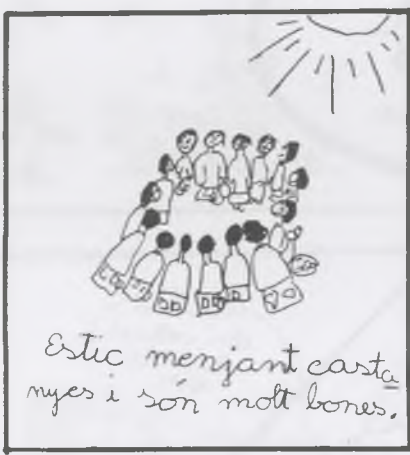 Estic menjant casta
nyes i són molt bones.